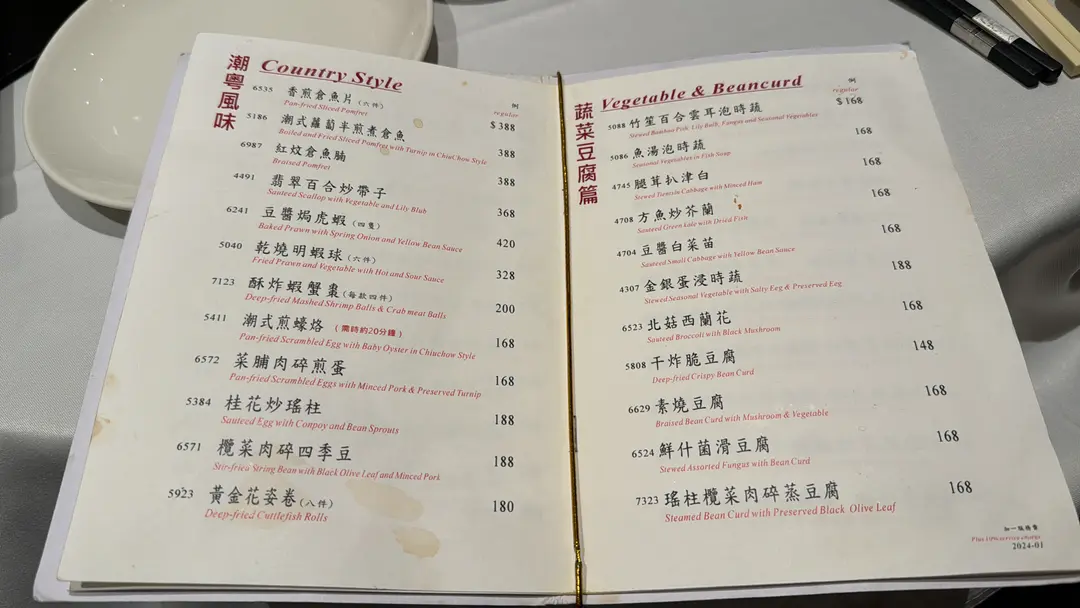 潮粵風味
Country Style
例
regular
6535 香煎倉魚片(六件) $388
Pan-fried Sliced Pomfret
5186 潮式蘿蔔半煎煮倉魚 388
Boiled and Fried Sliced Pomfret with Turnip in ChiuChow Style
6987 紅炆倉魚腩 388
Braised Pomfret
4491 翡翠百合炒帶子 368
Sauteed Scallop with Vegetable and Lily Blub
6241 豆醬焗虎蝦(四隻) 420
Baked Prawn with Spring Onion and Yellow Bean Sauce
5040 乾燒明蝦球(六件) 328
Fried Prawn and Vegetable with Hot and Sour Sauce
7123 酥炸蝦蟹棗(每款四件) 200
Deep-fried Mashed Shrimp Balls & Crab meat Balls
5411 潮式煎蠔烙 (需時約20分鐘) 168
Pan-fried Scrambled Egg with Baby Oyster in Chiuchow Style
6572 菜脯肉碎煎蛋 168
Pan-fried Scrambled Eggs with Minced Pork & Preserved Turnip
5384 桂花炒瑤柱 188
Sauteed Egg with Conpoy and Bean Sprouts
6571 欖菜肉碎四季豆 188
Stir-fried String Bean with Black Olive Leaf and Minced Pork
5923 黃金花姿卷(八件) 180
Deep-fried Cuttlefish Rolls
蔬菜豆腐篇
Vegetable & Beancurd
例
regular
5088 竹笙百合雲耳泡時蔬 $168
Stewed Bamboo Pith, Lily Bulb, Fungus and Seasonal Vegetables
5086 魚湯泡時蔬 168
Seasonal Vegetables in Fish Soup
4745 腿茸扒津白 168
Stewed Tientsin Cabbage with Minced Ham
4708 方魚炒芥蘭 168
Sauteed Green kale with Dried Fish
4704 豆醬白菜苗 168
Sauteed Small Cabbage with Yellow Bean Sauce
4307 金銀蛋浸時蔬 188
Stewed Seasonal Vegetable with Salty Eeg & Preserved Eeg
6523 北菇西蘭花 168
Sauteed Broccoli with Black Mushroom
5808 干炸脆豆腐 148
Deep-fried Crispy Bean Curd
6629 素燒豆腐 168
Braised Bean Curd with Mushroom & Vegetable
6524 鮮什菌滑豆腐 168
Stewed Assorted Fungus with Bean Curd
7323 瑤柱欖菜肉碎蒸豆腐 168
Steamed Bean Curd with Preserved Black Olive Leaf
加一服務費
Plus 10% service charge
2024-01